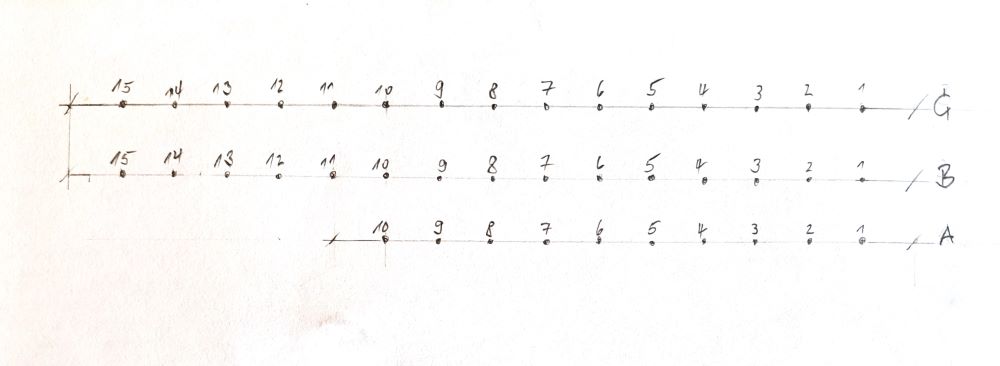 15 14 13 12 11 10 9 8 7 6 5 4 3 2 1 G
15 14 13 12 11 10 9 8 7 6 5 4 3 2 1 B
10 9 8 7 6 5 4 3 2 1 A